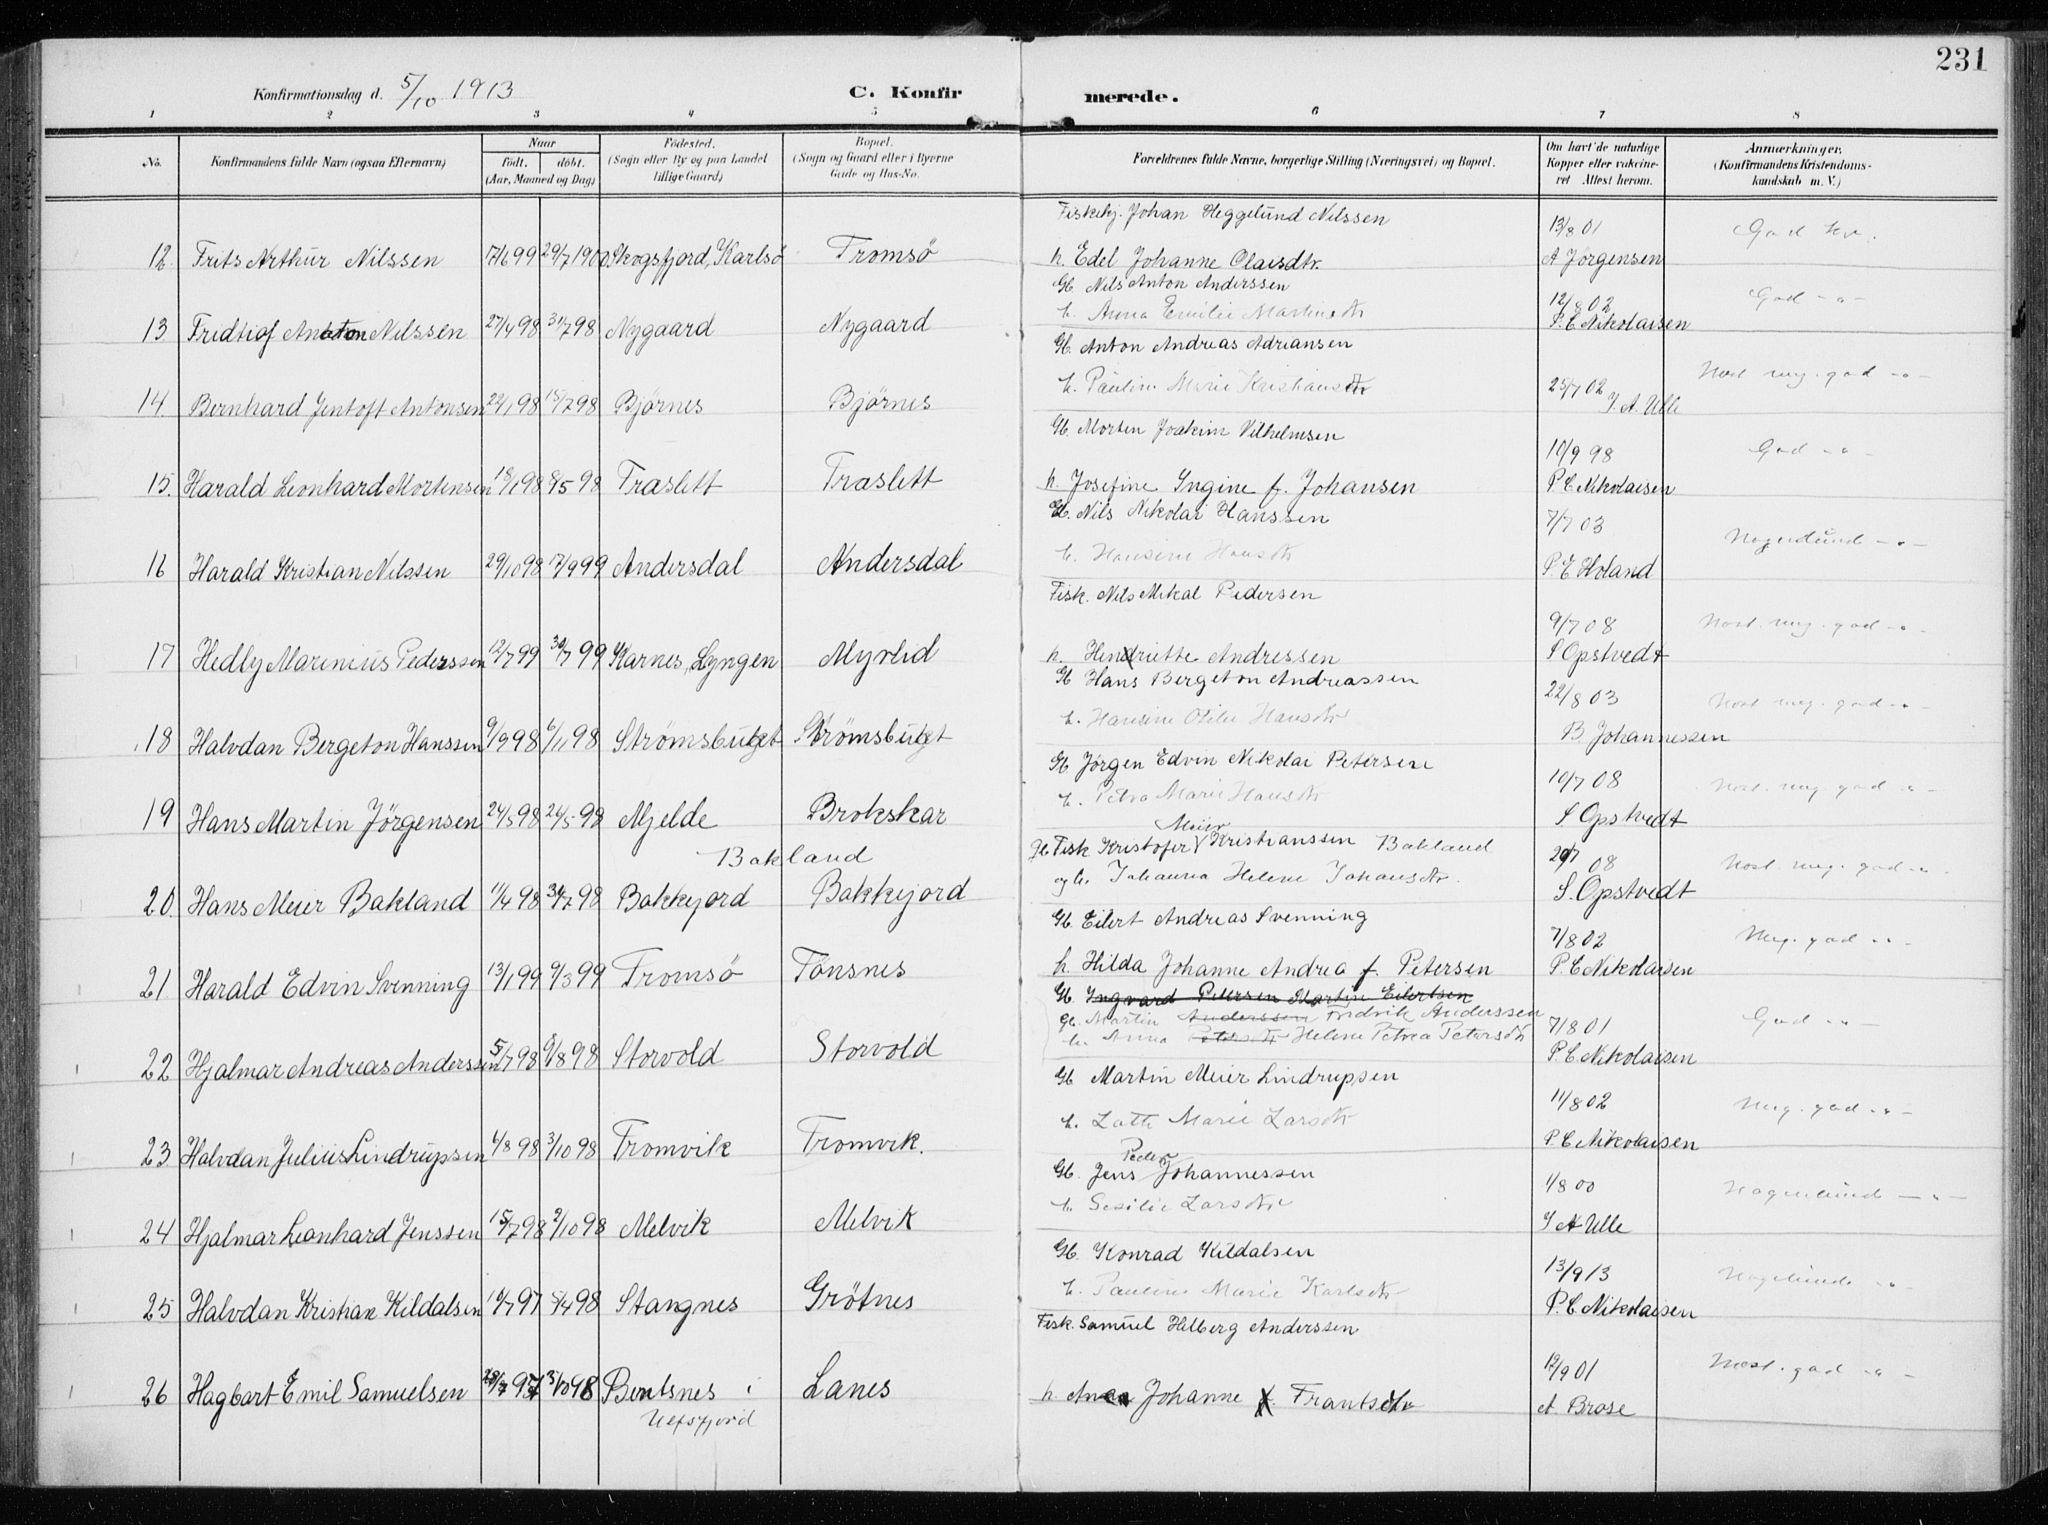 231
Konfirmationsdag d. 5/10 1913
C. Konfirmerede.
1 2 3 4 5 6 7 8
No.
Konfirmandens fulde Navn (ogsaa Efternavn)
Naar
født. døbt.
(Aar, Maaned og Dag)
Fødested.
(Sogn eller By og paa Landet
tillige Gaard)
Bopæl.
(Sogn og Gaard eller i Byerne
Gade og Hus-No.
Forældrenes fulde Navne, borgerlige Stilling (Næringsvei) og Bopæl.
Om havt de naturlige
Kopper eller vakcine-
ret Attest herom.
Anmærkninger.
(Konfirmandens Kristendoms-
kundskab m. V.)
Fiskekj. Johan Heggelund Nilssen
13/8 01
God
12. Frits Arthur Nilssen 17/6 99 29/7 1900 Skogsfjord, Karlsö Tromsö h. Edel Johanne Olaisdtr. A Jörgensen
Gb Nils Anton Anderssen
12/8 02
God -"-
h. Anna Emilie Martinsdtr
13 Fridtiof Anton Nilssen 27/4 98 31/7 98 Nygaard Nygaard P. C Nikolaisen
Gb. Anton Andreas Adriansen
Nost. meg. god -"-
h. Pauline Marie Kristiansdtr 25/7 02
14 Bernhard Jentoft Antonsen 22/1 98 15/7 98 Bjørnes Bjørnes J. A. Ulle
Gb. Morten Joakim Vilhelmsen
10/9 98
God -"-
15. Harald Leonhard Mortensen 18/1 98 8/5 98 Traslett Traslett h. Josefine Ingine f. Johansen P C Nikolaisen
Gb. Nils Nikolai Hanssen
7/7 03
Nogenlund -"-
h. Hansine Hansdtr
16 Harald Kristian Nilssen 29/10 98 17/9 99 Andersdal Andersdal P. E Holand
Fisk. Nils Mikal Pedersen
9/7 08
Nost. meg. god -"-
17 Hedly Marinius Pederssen 12/7 99 30/7 99 Karnes, Lyngen Myrlid h. Hendriette Andressen S Opstvedt
Gb Hans Bergeton Andreassen
22/8 03
Nost. meg. god -"-
h. Hansine Otilie Hansdtr
18 Halvdan Bergeton Hanssen 9/9 98 6/11 98 Strømsbugt Strømsbugt B. Johannessen
Gb Jørgen Edvin Nikolai Petersen
10/7 08
Nost. meg god -"-
h. Petra Marie Hansdtr
19 Hans Martin Jörgensen 24/3 98 26/5 98 Mjelde Brokskar S Opstvedt
Meier
Bakland
Gb Fisk Kristofer Kristianssen Bakland
08
Nost. meg. god -"-
og h. Johanna Helene Johansdtr.
20. Hans Meier Bakland 11/4 98 31/7 98 Bakkejord Bakkejord S. Opstvedt
Gb. Eilert Andreas Svenning
7/8 02
Meg. god -"-
21 Harald Edvin Svenning 13/1 99 9/3 99 Tromsö Tönsnes h. Hilda Johanne Andrea f. Petersen P. C Nikolaisen
Gb. Ingvard Petersen Martin Eilertsen
Gb. Martin Anderssen Fredrik Anderssen
7/8 01
God -"-
h. Anna Helene Petrea Petersdtr
22 Hjalmar Andreas Anderssen 5/7 98 9/8 98 Storvold Storvold P. C Nikolaisen
Gb Martin Meier Lindrupsen
11/8 02
Meg. god -"-
h. Lotte Marie Larsdtr
23 Halvdan Julius Lindrupsen 6/8 98 3/10 98 Tromvik Tromvik. P. C Nikolaisen
Peder
Gb. Jens Johannessen
1/8 00
Nogenlund -"-
h. Sesilie Larsdtr
24 Hjalmar Leonhard Jenssen 15/7 98 2/10 98 Melvik Melvik J A Ulle
Gb. Konrad Kildalsen
13/9 13
Nogenlunde -"-
h. Pauline Marie Karlsdtr
25 Halvdan Kristian Kildalsen 10/7 97 5/4 98 Stangnes Grötnes P. C Nikolaisen
Fisk. Samuel Hilberg Anderssen
12/9 01
Mest. god -"-
26 Hagbart Emil Samuelsen Bentsnes i Lanes h. Anna Johanne Frantsdtr A Brose
Ulfsfjord